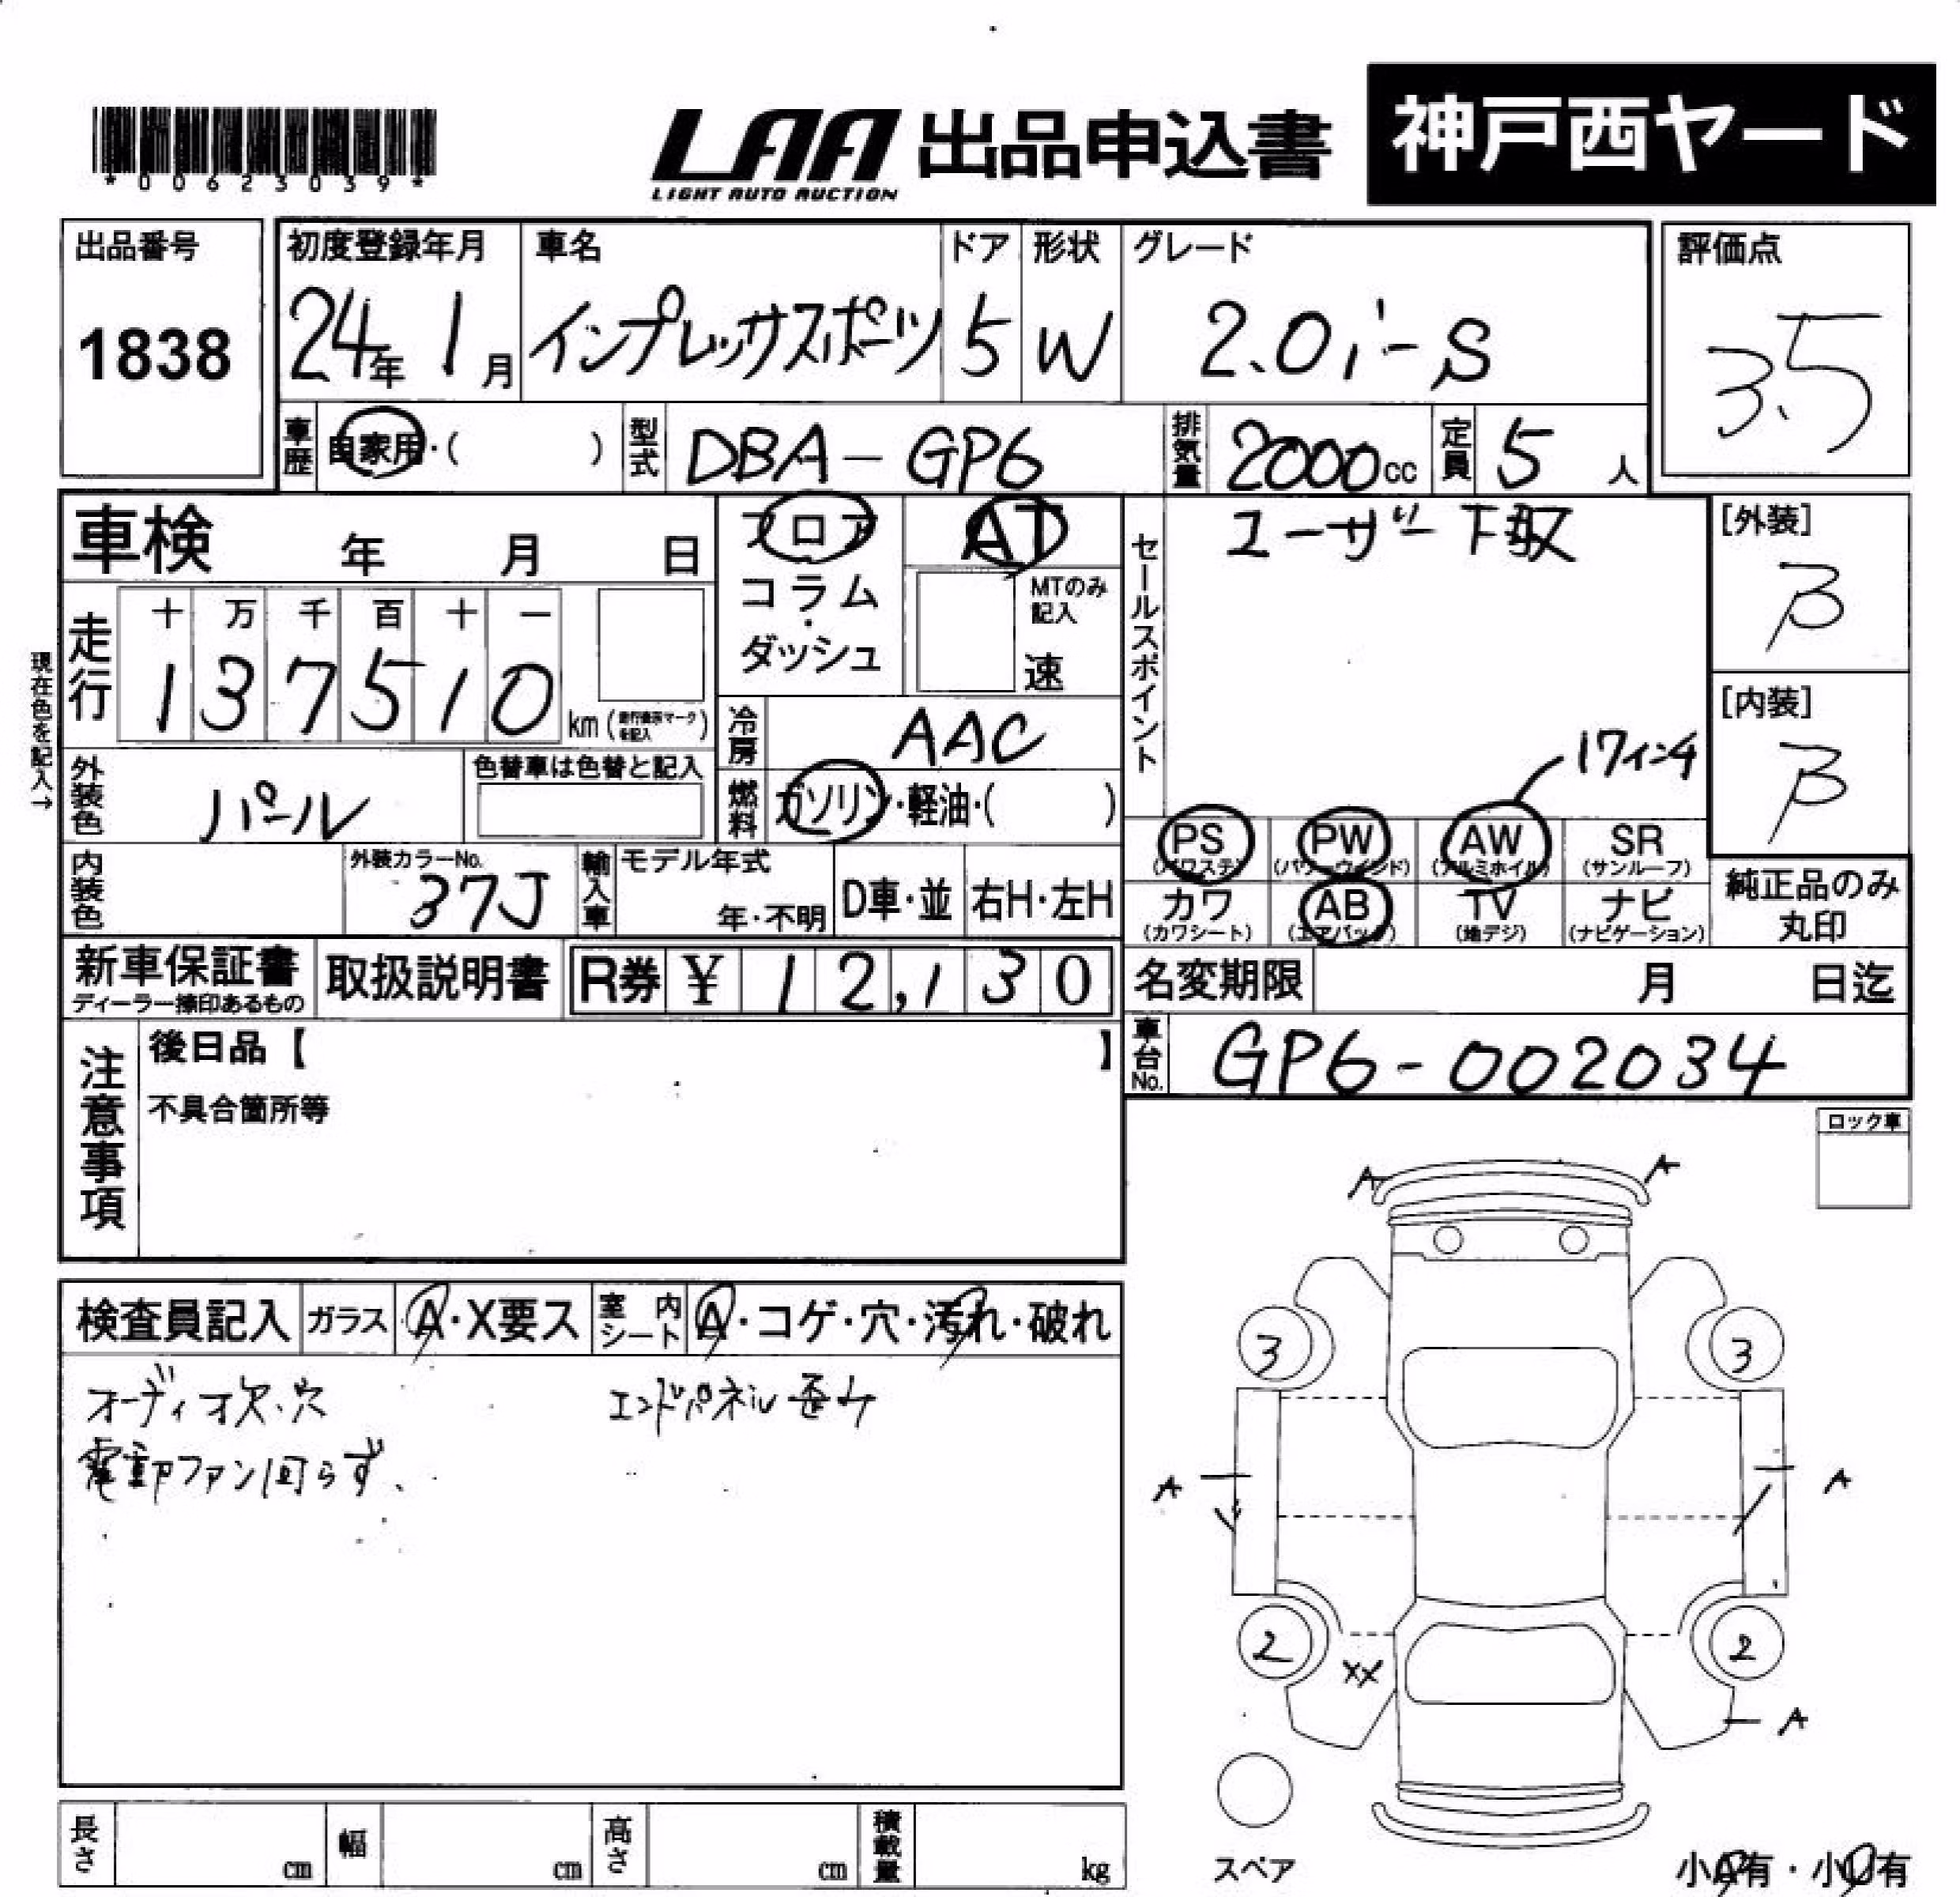 *00623039*
LAA 出品申込書 神戸西ヤード
LIGHT AUTO AUCTION
出品番号 初度登録年月 車名 ドア 形状 グレード 評価点
1838 24年 1月 インプレッサスポーツ 5 W 2.0i-S 3.5
車歴 自家用・( ) 型式 DBA-GP6 排気量 2000cc 定員 5人
車検 年 月 日 フロア AT セールスポイント ユーザー下取 [外装]
コラム・ダッシュ MTのみ記入 速 B
現在色を記入→
走行 十 万 千 百 十 一
1 3 7 5 1 0 km (走行表示マークを記入) [内装]
冷房 AAC 17インチ B
外装色 パール 色替車は色替と記入 燃料 ガソリン・軽油・( )
PS (パワステ) PW (パワーウインド) AW (アルミホイル) SR (サンルーフ)
内装色 外装カラーNo. 37J 輸入車 モデル年式 年・不明 D車・並 右H・左H
カワ (カワシート) AB (エアバッグ) TV (地デジ) ナビ (ナビゲーション) 純正品のみ丸印
新車保証書 取扱説明書 R券 ¥ 12,130 名変期限 月 日迄
ディーラー捺印あるもの
注意事項 後日品【 】 車台No. GP6-002034
不具合箇所等
ロック車
A A
検査員記入 ガラス A・X要ス 室内シート A・コゲ・穴・汚れ・破れ
3 3
オーディオ欠.穴 エンドパネル歪み
電動ファン回らず、
A A
2 2
XX
A
長さ cm 幅 cm 高さ cm 積載量 kg
スペア 小A有・小U有